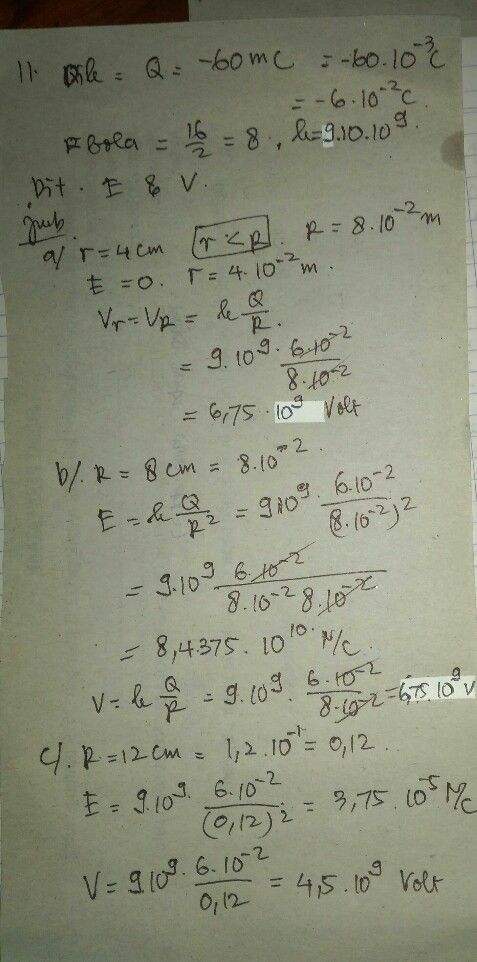 11. Dik = Q = -60 mC = -60.10⁻³C
= -6.10⁻²C.
R Bola = 16/2 = 8, k=9.10.10⁹.
Dit. E & V.
Jwb
a/ r = 4 cm r < R. R = 8.10⁻² m
E = 0. r = 4.10⁻² m.
Vr = VR = k Q/R.
= 9.10⁹. 6.10⁻²/8.10⁻²
= 6,75 . 10⁹ Volt
b/. R = 8 cm = 8.10⁻².
E = k Q/R² = 9.10⁹. 6.10⁻²/(8.10⁻²)²
= 9.10⁹ 6.10⁻²/8.10⁻² 8.10⁻²
= 8,4375. 10¹⁰. N/C.
V = k Q/R = 9.10⁹. 6.10⁻²/8.10⁻² = 6,75.10⁹ V
c/. R = 12 cm = 1,2.10⁻¹ = 0,12..
E = 9.10⁹. 6.10⁻²/(0,12)² = 3,75 . 10⁻⁵ N/C
V = 9.10⁹. 6.10⁻²/0,12 = 4,5 . 10⁹ Volt